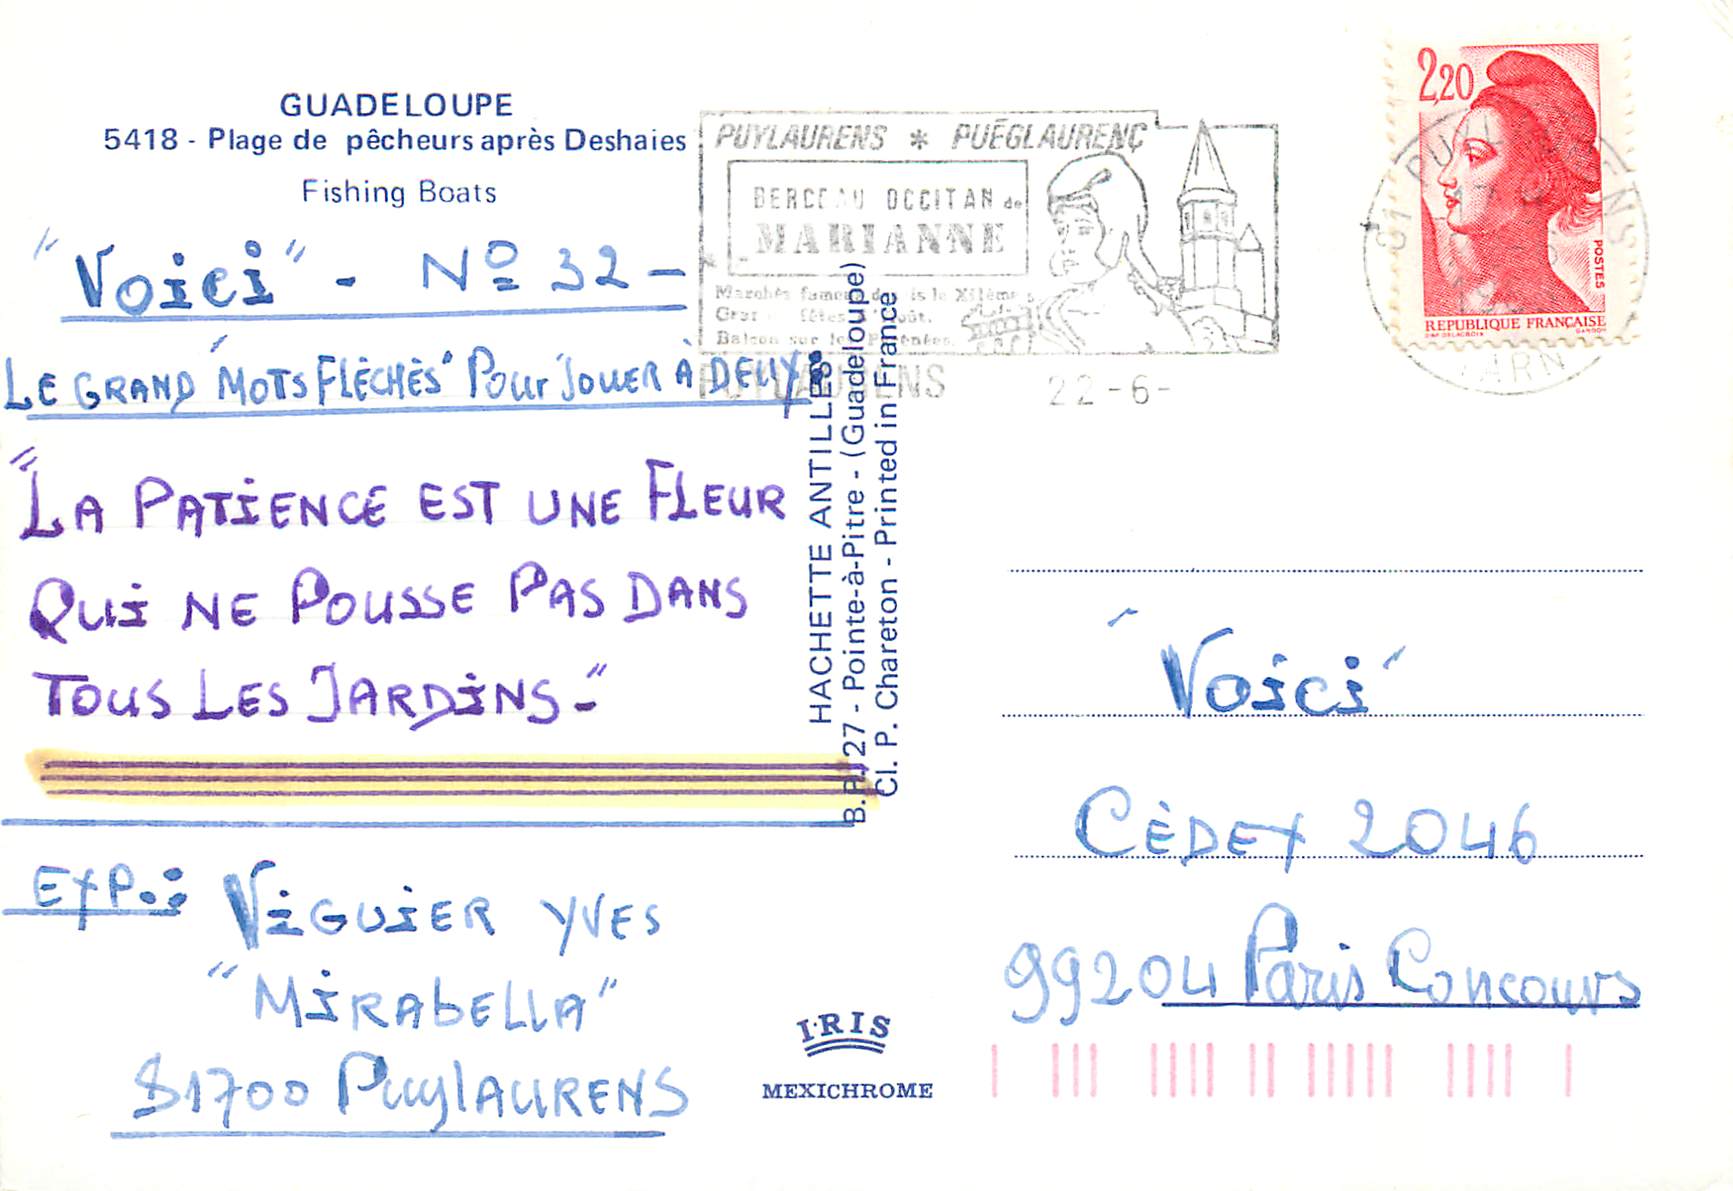 GUADELOUPE
5418 - Plage de pêcheurs après Deshaies
Fishing Boats
"Voici" - Nº 32 -
LE GRAND "MOTS FLÉCHÉS" POUR JOUER À DEUX :
"LA PATIENCE EST UNE FLEUR
QUI NE POUSSE PAS DANS
TOUS LES JARDINS."
EXP. :
VIGUIER YVES
"MIRABELLA"
81700 PUYLAURENS
HACHETTE ANTILLES
B.P. 27 - Pointe-à-Pitre - (Guadeloupe)
Cl. P. Chareton - Printed in France
IRIS
MEXICHROME
PUYLAURENS * PUÉGLAURENÇ
BERCEAU OCCITAN de
MARIANNE
Marchés fameux depuis le XIIème
fêtes d'Août.
Balcon sur les Pyrénées.
PUYLAURENS
22-6-
2,20
POSTES
REPUBLIQUE FRANÇAISE
81 PUYLAURENS
TARN
"Voici"
CÉDEX 2046
99204 Paris Concours